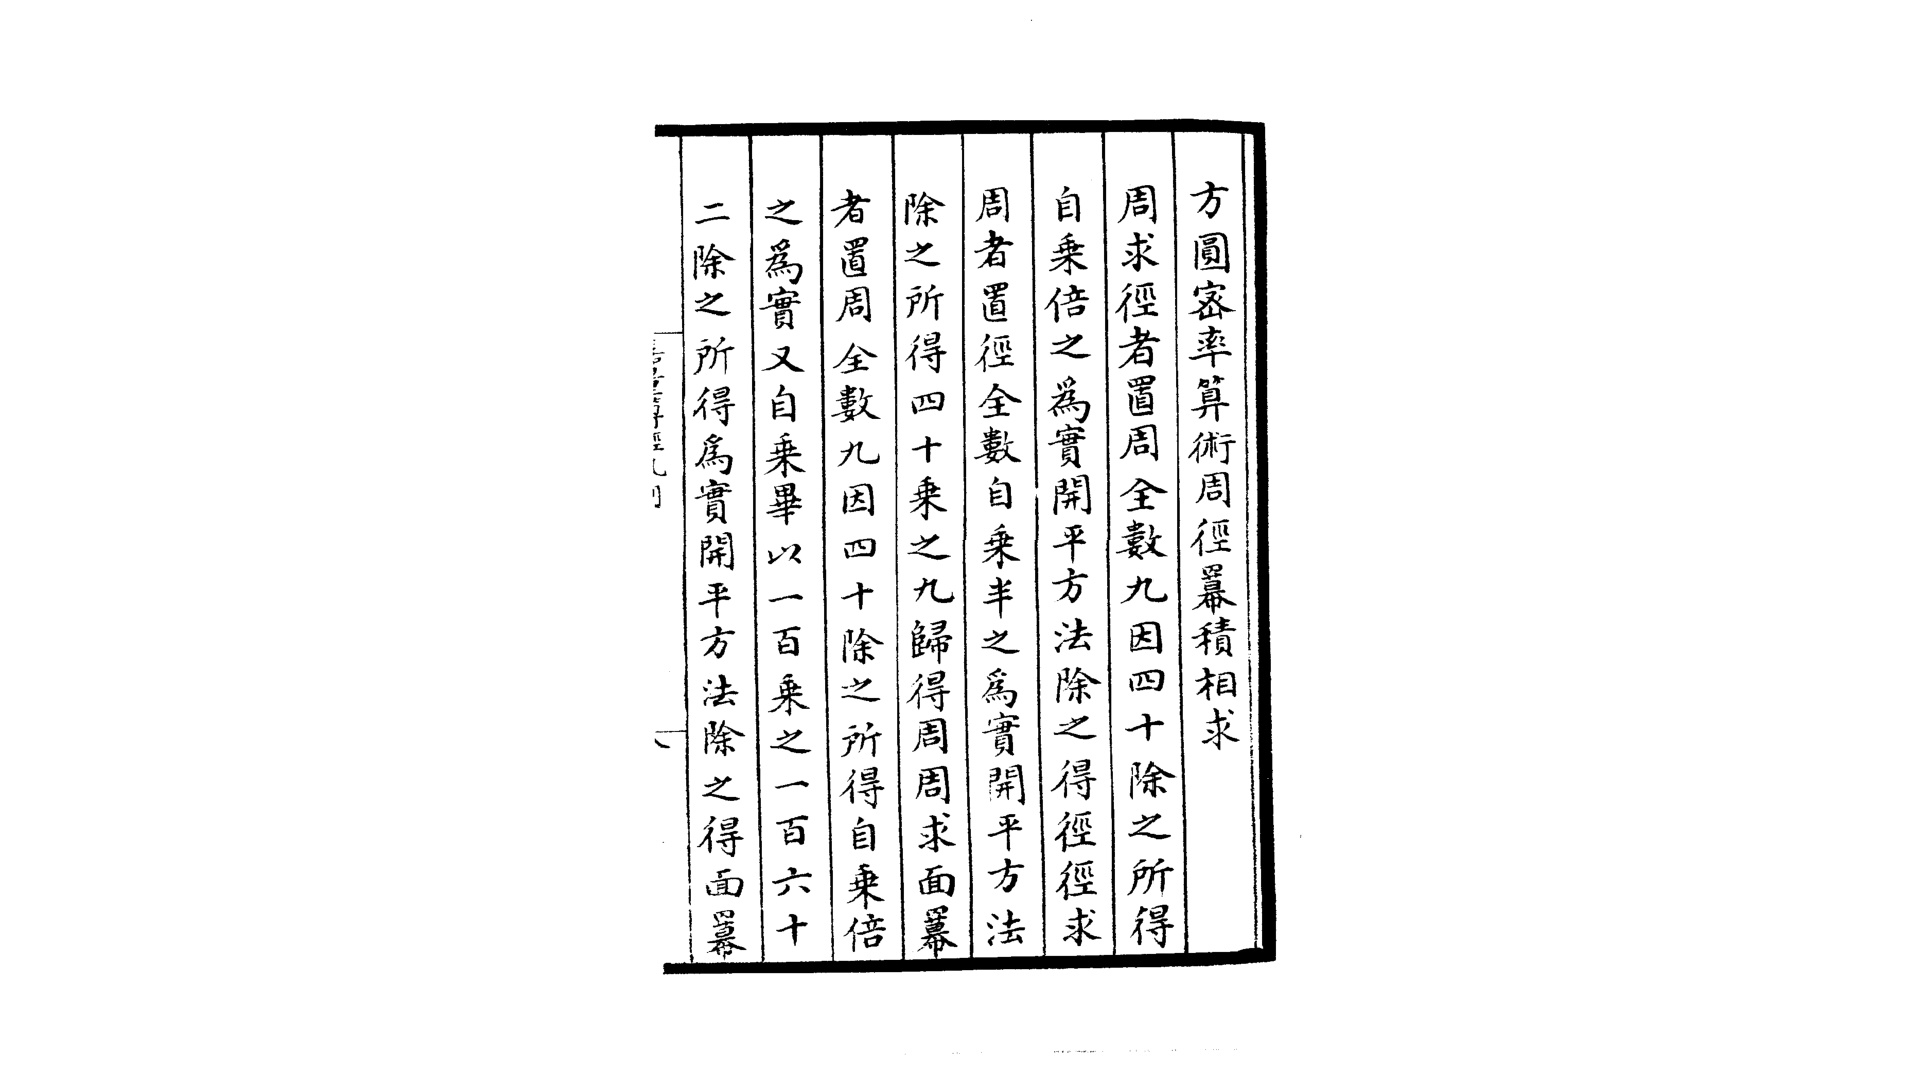 方圓宻率算術周徑羃積相求
周求徑者置周全數九因四十除之所得
自乘倍之為實開平方法除之得徑徑求
周者置徑全數自乘半之為實開平方法
除之所得四十乘之九歸得周周求面羃
者置周全數九因四十除之所得自乘倍
之為實又自乘畢以一百乘之一百六十
二除之所得為實開平方法除之得面羃